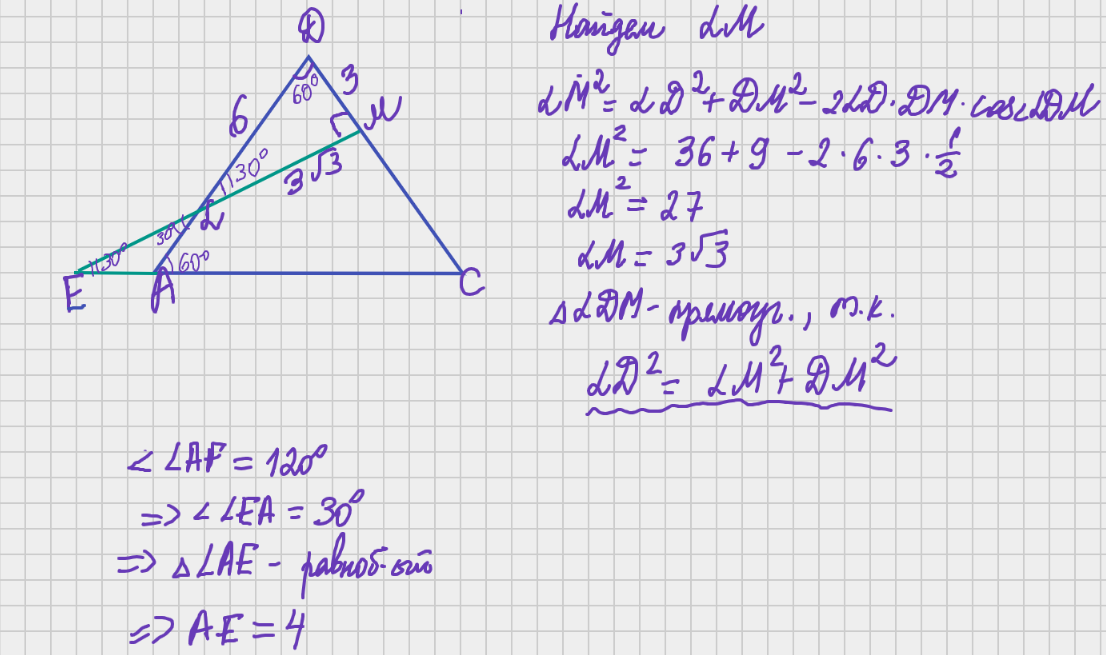 D
3
60°
6
M
30°
3√3
L
30°
30°
60°
E
A
C
Найдем LM
LM² = LD² + DM² - 2LD · DM · cos∠LDM
LM² = 36 + 9 - 2 · 6 · 3 · 1/2
LM² = 27
LM = 3√3
△LDM - прямоуг., т.к.
LD² = LM² + DM²
∠LAE = 120°
=> ∠LEA = 30°
=> △LAE - равноб-ый
=> AE = 4